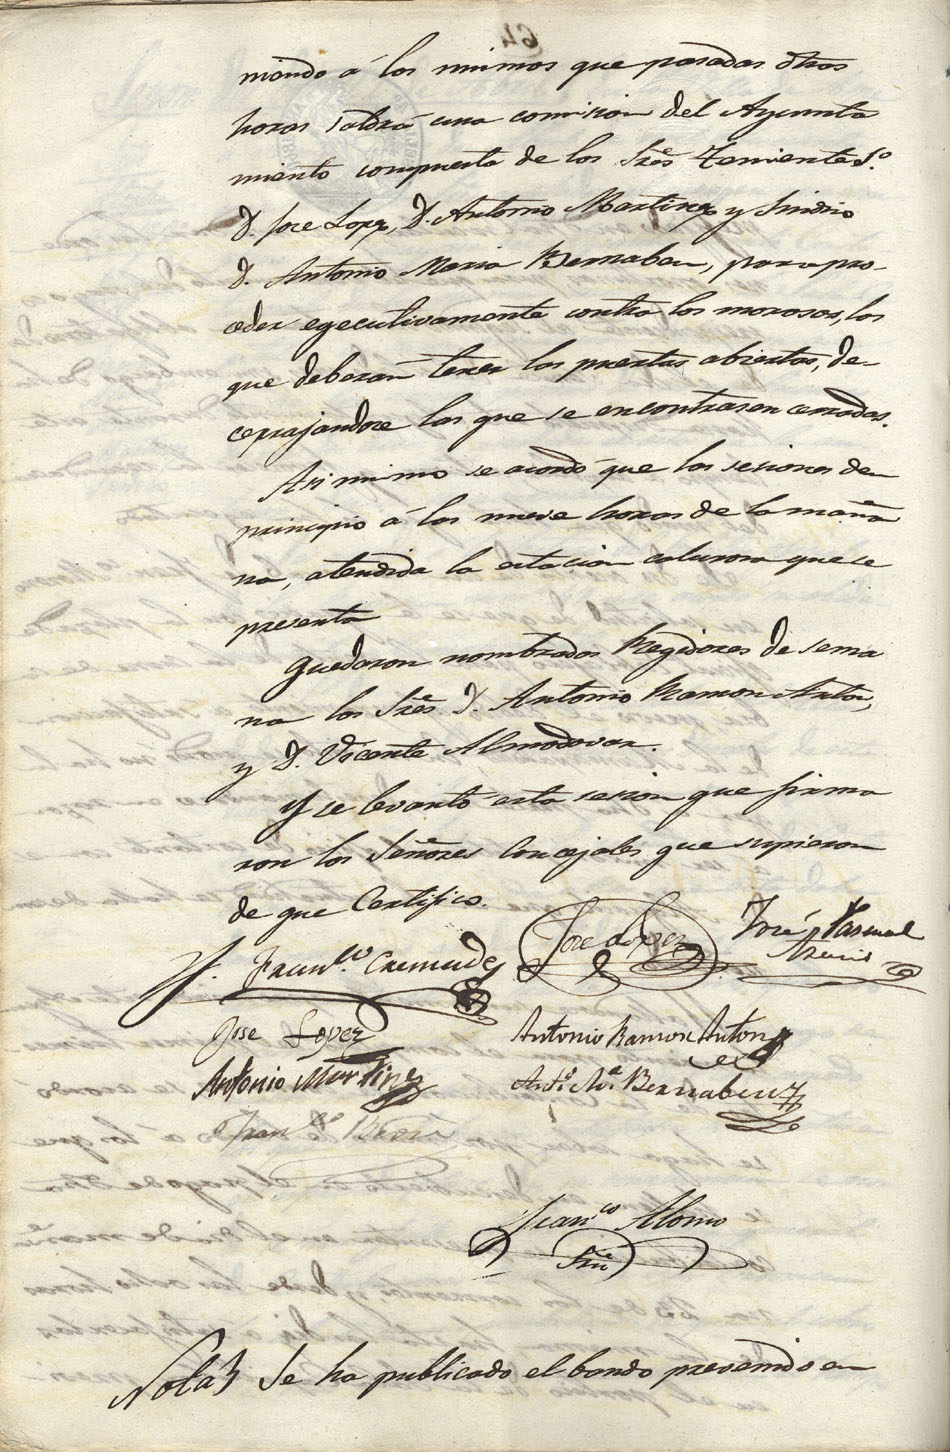 niendo á los mismos que pasadas otras
horas saldrá una comision del Ayunta
miento compuesta de los Sres Teniente 1.º
D. Jose Lopez, D. Antonio Martinez y Sindico
D. Antonio Maria Bernabeu, para pro-
ceder egecutivamente contra los morosos, los
que deberan tener las puertas abiertas, de-
cerrajandose las que se encontrasen cerradas.
Asi mismo se acordó que las sesiones den
principio á las nueve horas de la maña
na, atendida la estacion calurosa que se
presenta
Quedaron nombrados Regidores de sema
na los Sres D. Antonio Ramon Anton,
y D. Vicente Almodovar.
Y se levantó esta sesion que firma
ron los Señores Concejales que supieron
de que Certifico.
Franco. Cremades
Jose Lopez
José Pascual
Jose Lopez
Antonio Ramon Anton
Antonio Martinez
Anto. Ma. Bernabeu
Franco.
Franco Alonso
Srio
Nota} Se ha publicado el bando prevenido en